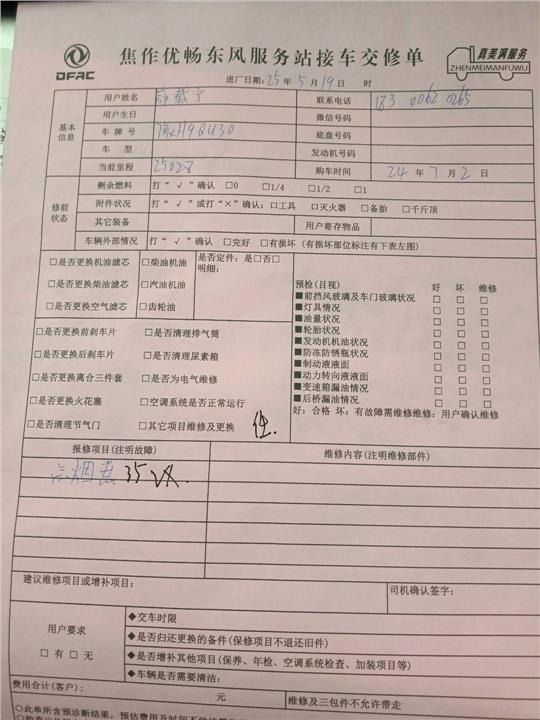 DFAC 焦作优畅东风服务站接车交修单 真美满服务
ZHENMEIMANFUWU
进厂日期：25年 5月 19日 时
基本信息
用户姓名 联系电话 183 0062 0265
用户生日 微信号码
车牌号 H9QU30 底盘号码
车型 发动机号码
当前里程 25028 购车时间 24年 7月 2日
修前状态
剩余燃料 打“√”确认 □0 □1/4 □1/2 □1
附件状况 打“√”或打“×”确认：□工具 □灭火器 □备胎 □千斤顶
其它装备 用户寄存物品
车辆外部情况 打“√”确认 □完好 □有损坏（有损坏部位标注有下表左图）
□是否更换机油滤芯 □柴油机油 是否定件：是□否□
明细：
□是否更换柴油滤芯 □汽油机油
□是否更换空气滤芯 □齿轮油
□是否更换前刹车片 □是否清理排气筒
□是否更换后刹车片 □是否清理尿素箱
□是否更换离合三件套 □是否为电气维修
□是否更换火花塞 □空调系统是否正常运行
□是否清理节气门 □其它项目维修及更换
预检（目视） 好 坏 维修
■前挡风玻璃及车门玻璃状况 □ □ □
■灯具情况 □ □ □
■油量状况 □ □ □
■轮胎状况 □ □ □
■发动机机油状况 □ □ □
■防冻防锈瓶状况 □ □ □
■制动液液面 □ □ □
■动力转向液液面 □ □ □
■变速箱漏油情况 □ □ □
■后桥漏油情况 □ □ □
好：合格 坏：有故障需维修维修：用户确认维修
报修项目（注明故障） 维修内容（注明维修部件）
点烟器 35
建议维修项目或增补项目： 司机确认签字：
用户要求
□有□无
◆交车时限
◆是否归还更换的备件（保修项目不退还旧件）
◆是否增补其他项目（保养、年检、空调系统检查、加装项目等）
◆车辆是否需要清洁：
费用合计（客户）： 元 维修及三包件不允许带走
○此单所含预诊断结果，预估费用及时间